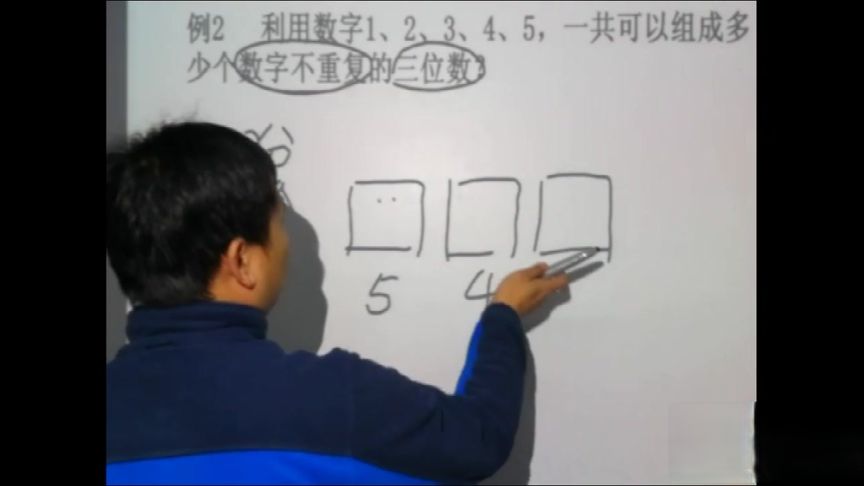 例2 利用数字1、2、3、4、5，一共可以组成多
少个数字不重复的三位数?
分
5 4